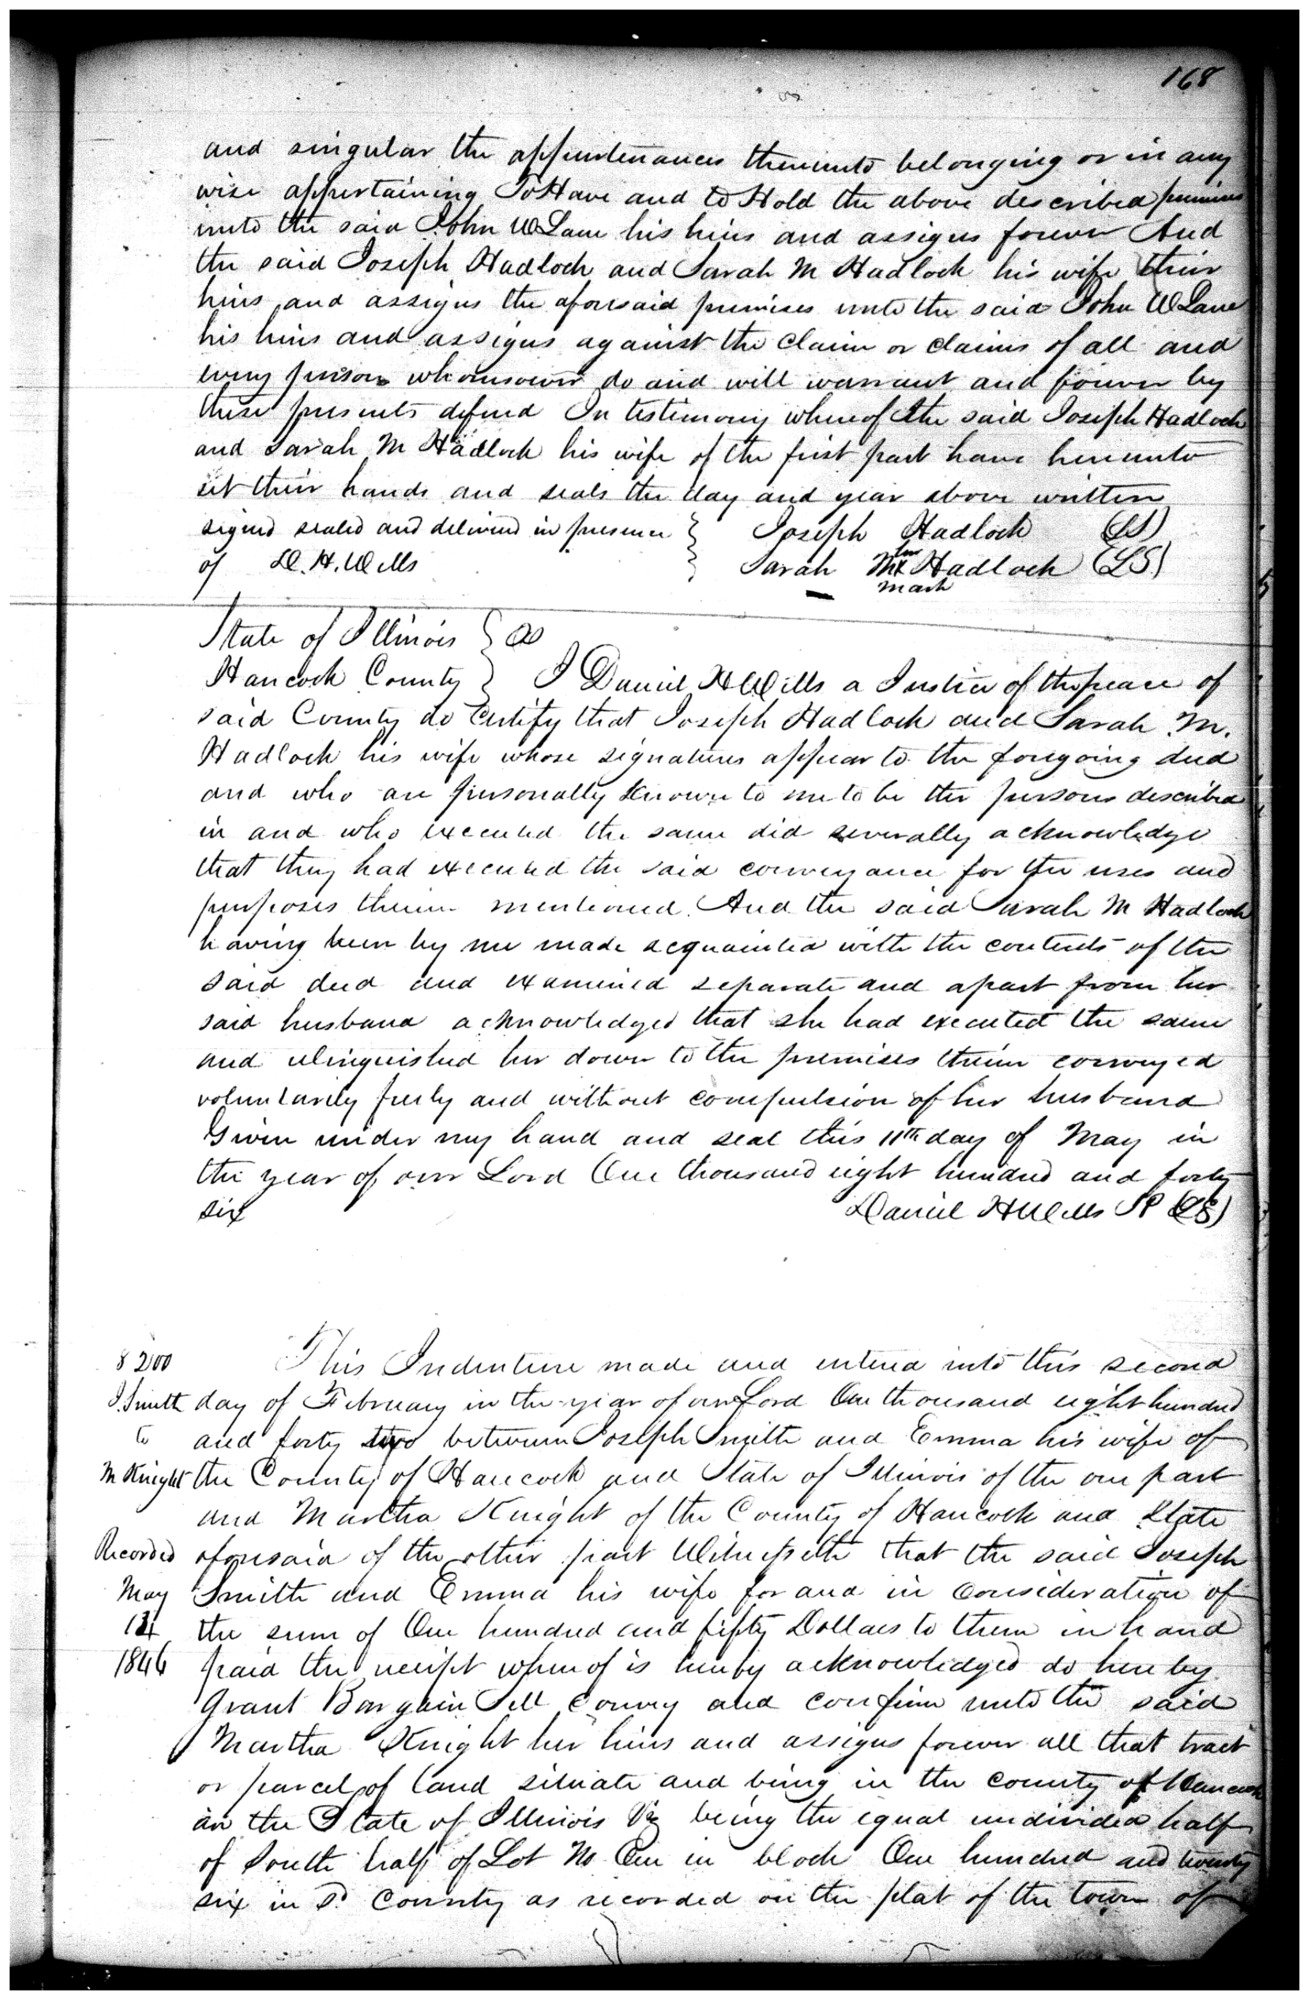 168
and singular the appurtenances thereunto belonging or in any
wise appertaining To Have and to Hold the above described premises
unto the said John W Lane his heirs and assigns forever And
the said Joseph Hadlock and Sarah M Hadlock his wife their
heirs and assigns the aforesaid premises unto the said John W Lane
his heirs and assigns against the claim or claims of all and
every person whomsoever do and will warrant and forever by
these presents defend In testimony whereof the said Joseph Hadlock
and Sarah M Hadlock his wife of the first part have hereunto
set their hands and seals the day and year above written
signed sealed and delivered in presence } Joseph Hadlock (LS)
of D. H. Wells } Sarah M her x Hadlock (LS)
mark
State of Illinois }
Hancock County } I Daniel H Wells a Justice of the peace of
said County do certify that Joseph Hadlock and Sarah M.
Hadlock his wife whose signatures appear to the foregoing deed
and who are personally known to me to be the persons described
in and who executed the same did severally acknowledge
that they had executed the said conveyance for the uses and
purposes therein mentioned. And the said Sarah M Hadlock
having been by me made acquainted with the contents of the
said deed and examined separate and apart from her
said husband acknowledged that she had executed the same
and relinquished her dower to the premises therein conveyed
voluntarily freely and without compulsion of her husband
Given under my hand and seal this 11th day of May in
the year of our Lord One thousand eight hundred and forty
six Daniel H Wells JP (LS)
8200 This Indenture made and entered into this second
J. Smith day of February in the year of our Lord One thousand eight hundred
to and forty two between Joseph Smith and Emma his wife of
M Knight the County of Hancock and State of Illinois of the one part
and Martha Knight of the County of Hancock and State
Recorded aforesaid of the other part Witnesseth that the said Joseph
May Smith and Emma his wife for and in Consideration of
14 the sum of One hundred and fifty Dollars to them in hand
1846 paid the receipt whereof is hereby acknowledged do hereby
Grant Bargain Sell Convey and confirm unto the said
Martha Knight her heirs and assigns forever all that tract
or parcel of land situate and being in the county of Hancock
in the State of Illinois Viz being the equal undivided half
of South half of Lot No One in block One hundred and twenty
six in sd County as recorded on the plat of the town of